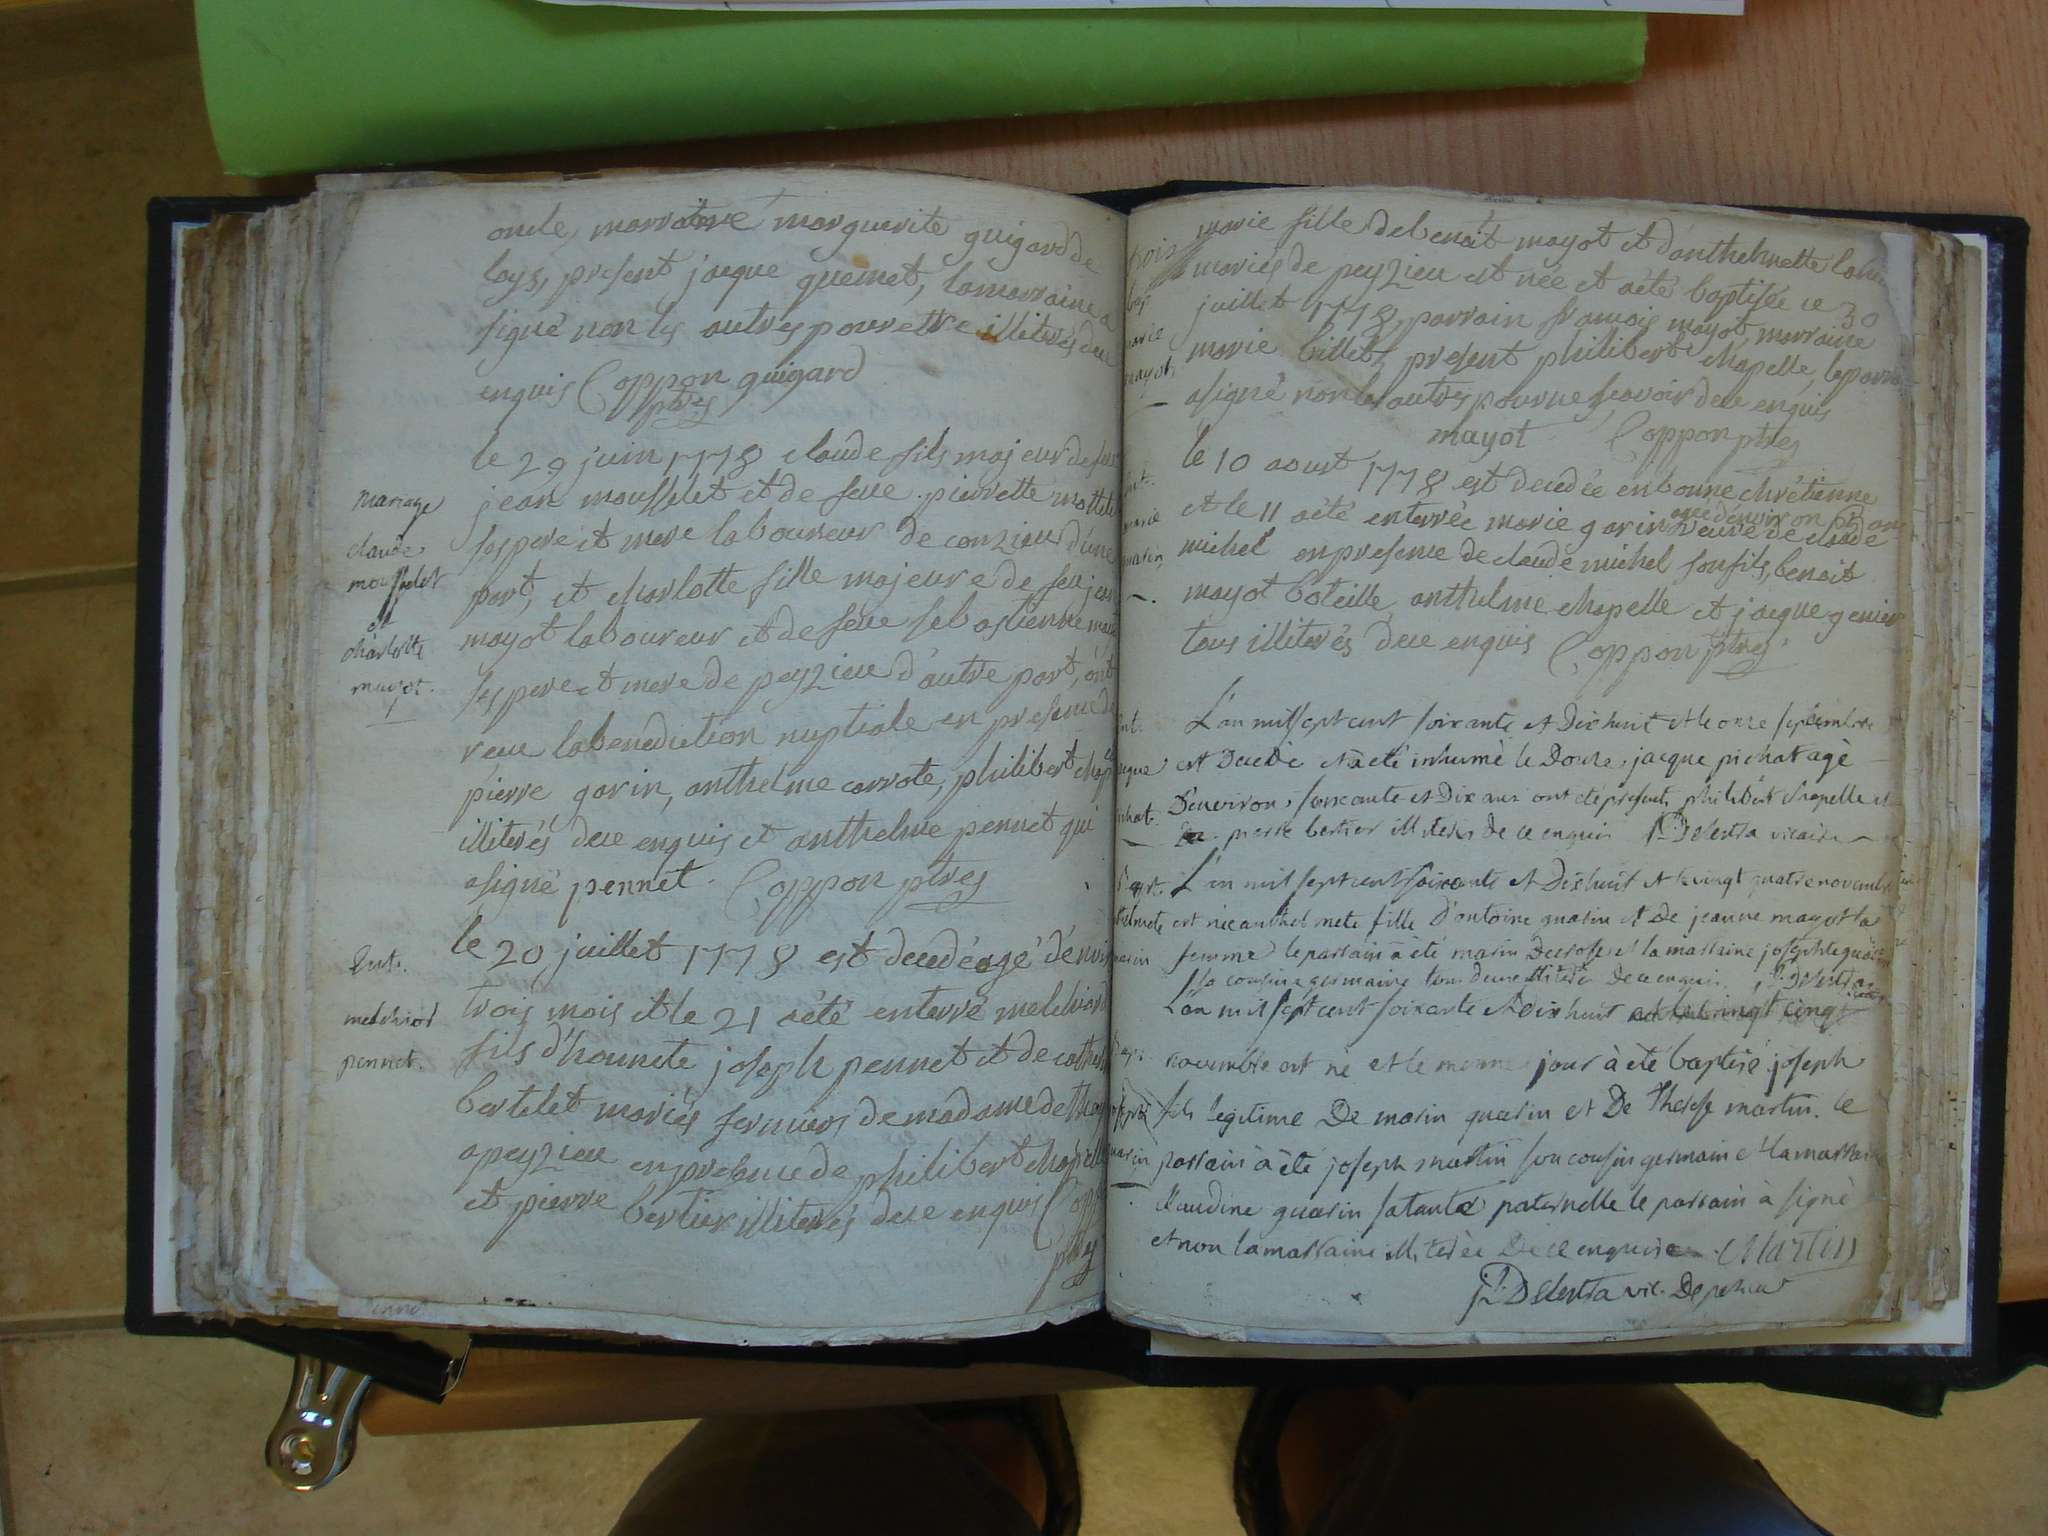 oncle, marraine marguerite guigard de
lays, present jacque quemet, la marraine a
signé non les autres pour ettre illiterés de ce
enquis Coppon guigard
ptre
le 29 juin 1778 claude fils majeur de feu
jean mousselet et de feue pierrette mottet
ses pere et mere laboureur de conzieu d'une
part, et charlotte fille majeure de feu jean
mayot laboureur et de feue sebastienne
ses pere et mere de peyzieu d'autre part, ont
reçu la benediction nuptiale en presence de
pierre garin, anthelme carrote, philibert chapelle
illiterés de ce enquis et anthelme pennet qui
a signé pennet. Coppon ptre
le 20 juillet 1778 est decedé agé d'environ
trois mois et le 21 a été enterré melchior
fils d'honnete joseph pennet et de
bertelet mariés fermiers de madame de
a peyzieu en presence de philibert chapelle
et pierre bertier illiterés de ce enquis Coppon
ptre
mariage
claude
mousselet
et
charlotte
mayot.
Ent.
melchior
pennet.
marie fille de benoit mayot et d'anthelmette
mariés de peyzieu est née et a été baptisée ce 30
juillet 1778, parrain francois mayot, marraine
marie billet, present philibert chapelle, le parrain
a signé non les autres pour ne sçavoir de ce enquis
mayot Coppon ptre
le 10 aoust 1778 est decedée en bonne chrétienne
agée d'environ 65 ans
et le 11 a été enterrée marie garin veuve de claude
michel en presence de claude michel son fils, benoit
mayot boteille, anthelme chapelle et jacque genier
tous illiterés de ce enquis Coppon ptre
L'an mil sept cent soixante et Dixhuit et le onze septembre
est Decedé et a été inhumé le Douze, jacque pichat agé
D'environ soixante et Dix ans ont été presents philibert chapelle et
pierre bertier illiterés De ce enquis Delestra vicaire
L'an mil sept cent soixante et Dixhuit et le vingt quatre novembre
est née anthelmete fille D'antoine guarin et De jeanne mayot sa
femme le parrain a été marin Decroso et la marraine josephte guarin
sa cousine germaine tous deux illiterés De ce enquis. Delestra
L'an mil sept cent soixante et Dixhuit et le vingt cinq
novembre est né et le meme jour à été baptisé joseph
fils legitime De marin guarin et De Therese martin. le
parrain à été joseph martin son cousin germain et la marraine
Claudine guarin sa tante paternelle le parrain à signé
et non la marraine illiterée De ce enquise. Martin
Delestra vic. De peizieu
marie
mayot,
marie
garin,
Ent.
guarin